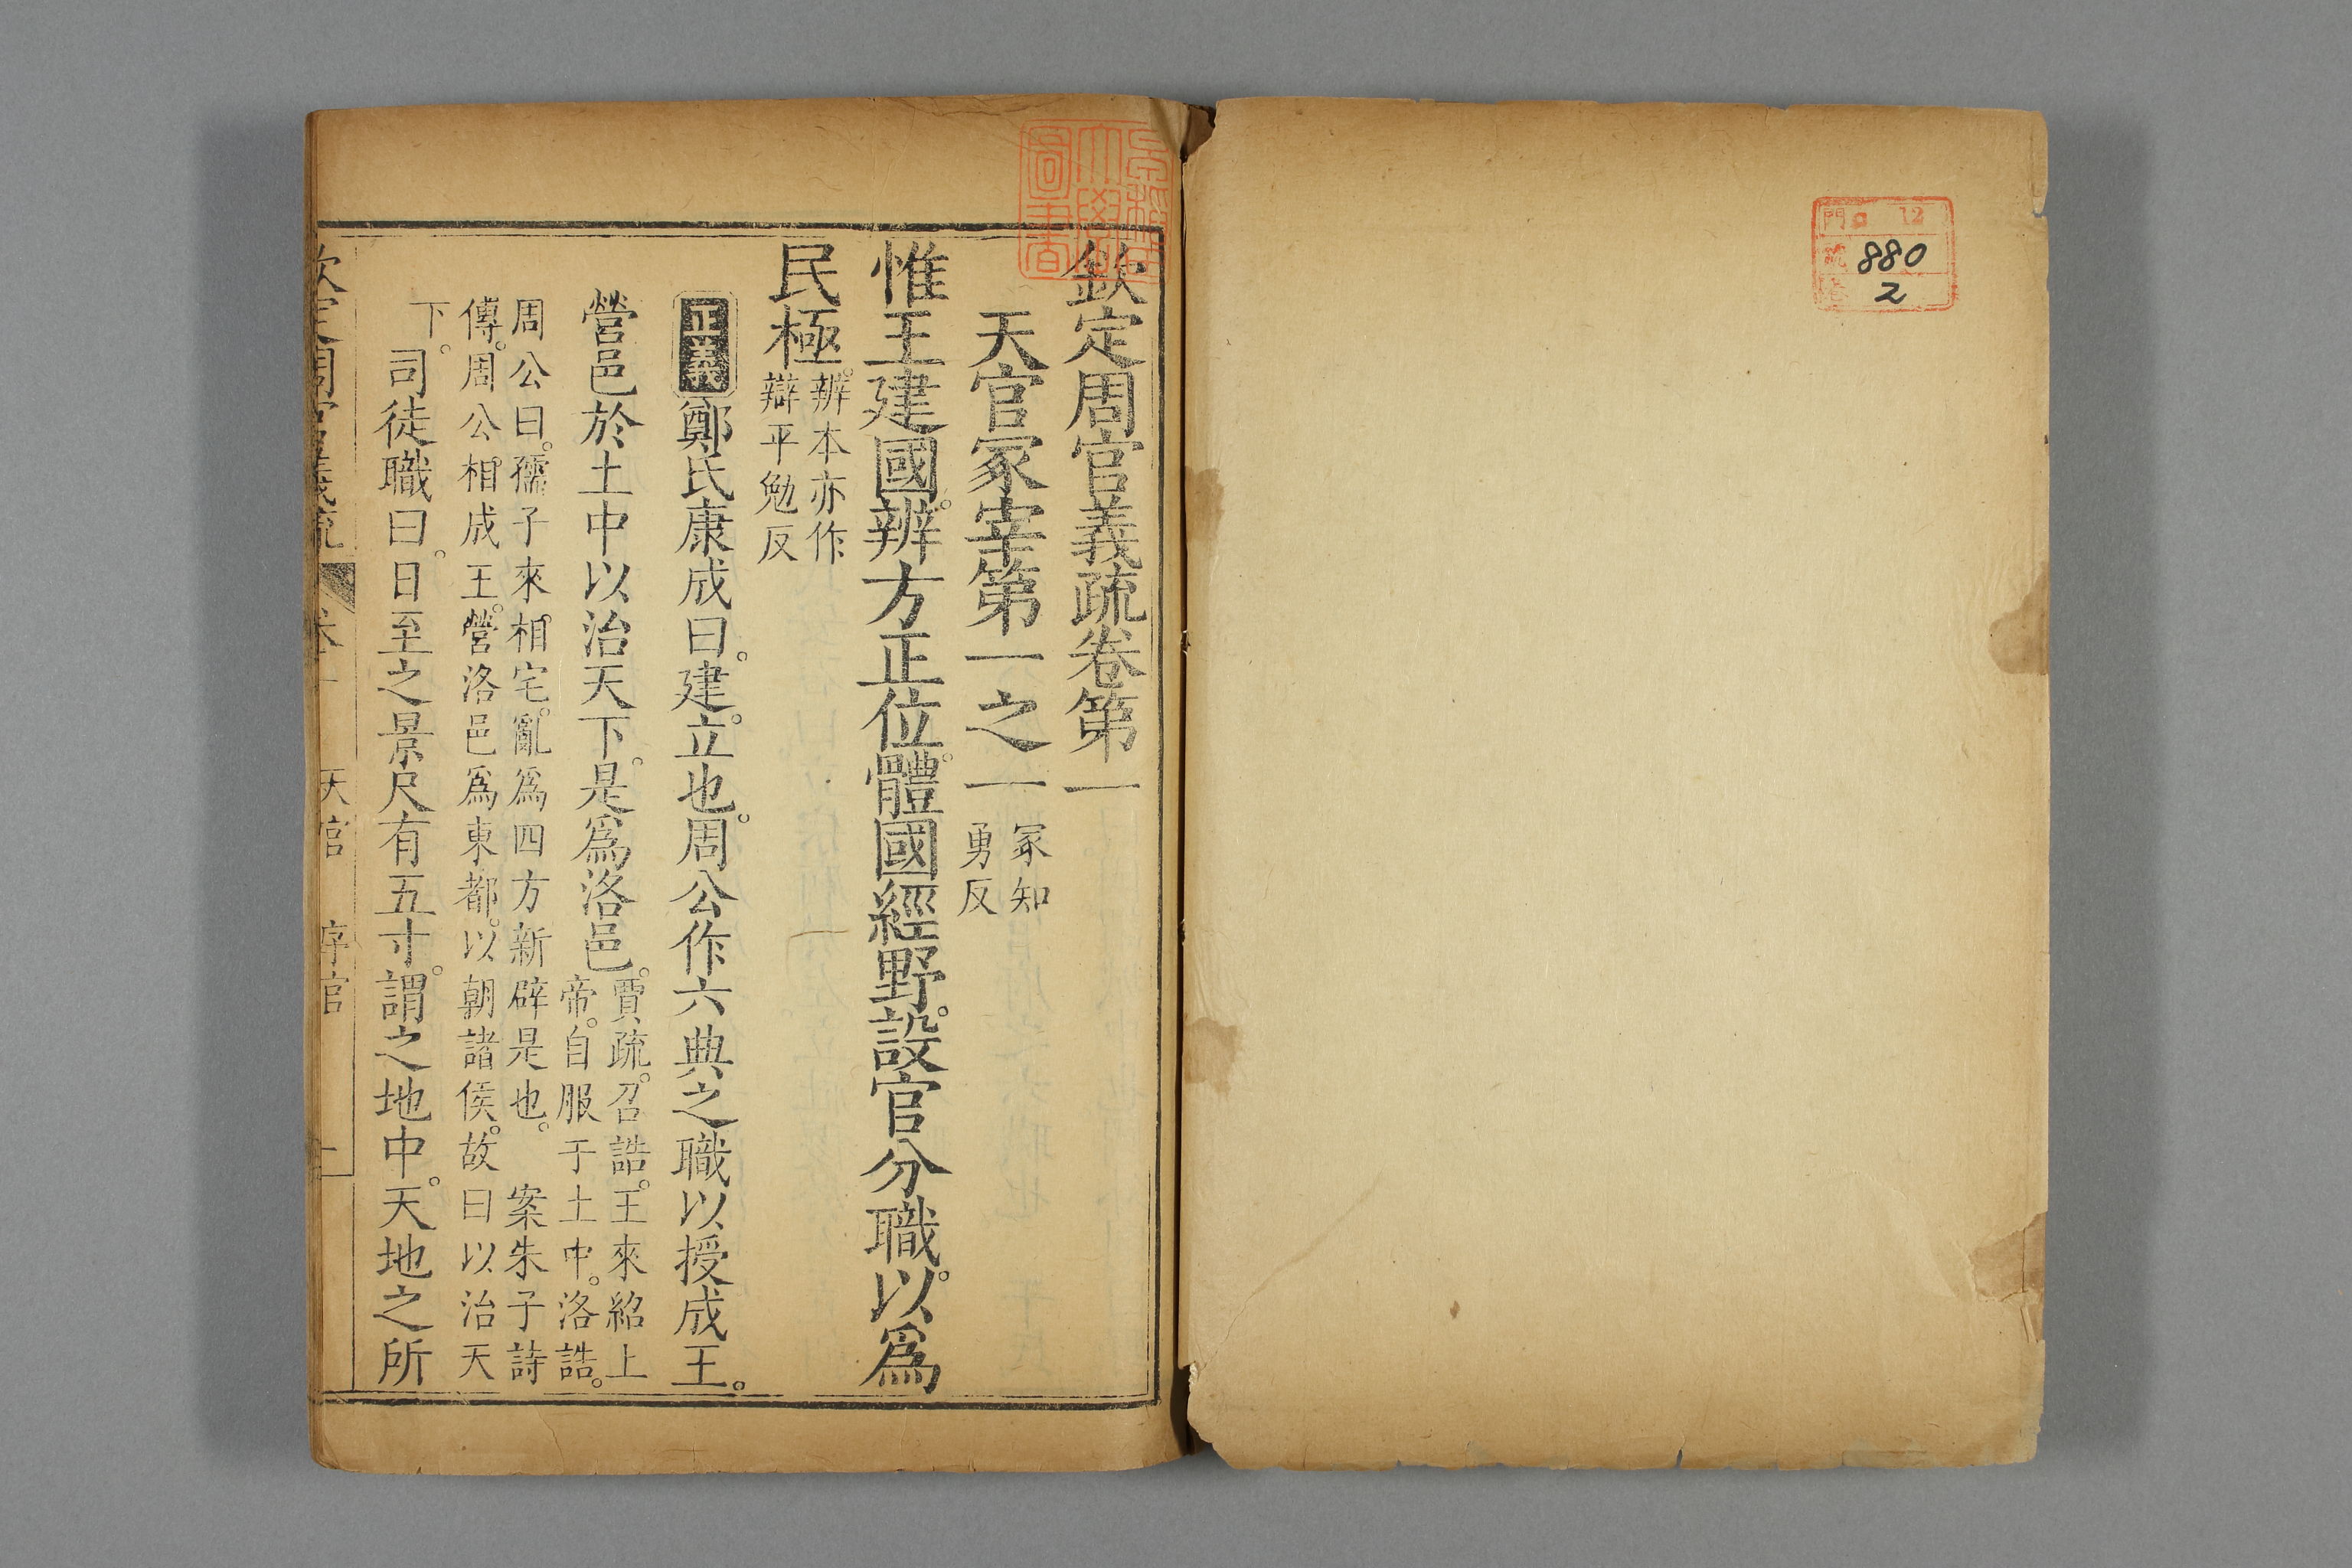 門 12
號 880
2
京都
大學
圖書
欽定周官義疏卷第一
天官冢宰第一之一 冢知
勇反
惟王建國。辨方正位。體國經野。設官分職。以爲
民極。 辨本亦作
辯平勉反
正義 鄭氏康成曰。建。立也。周公作六典之職以授成王。
營邑於土中以治天下。是爲洛邑。 賈疏。召誥。王來紹上
帝。自服于土中。洛誥。
周公曰。孺子來相宅。亂爲四方新辟是也。 案朱子詩
傳。周公相成王。營洛邑爲東都。以朝諸侯。故曰以治天
下。
司徒職曰。日至之景尺有五寸。謂之地中。天地之所
欽定周官義疏 卷一 天官 序官 一